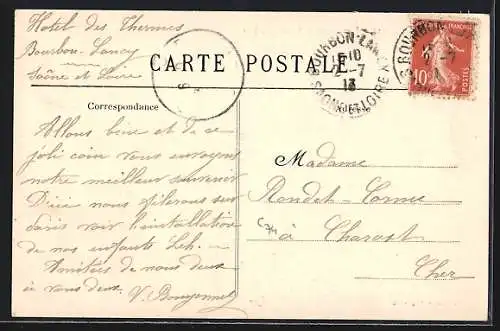 Hotel des Thermes
Bourbon-Lancy
Saône et Loire
CARTE POSTALE
BOURBON-LANCY
15 10
2-7
13
SAONE-ET-LOIRE
BOURBON
2-7
10
POSTES
Correspondance
Allons bien et de ce
joli coin vous envoyons
notre meilleur souvenir
D'ici nous filerons sur
Paris voir l'installation
de nos enfants
Amitiés de nous deux
à vous deux.
Madame
à Charost
Cher